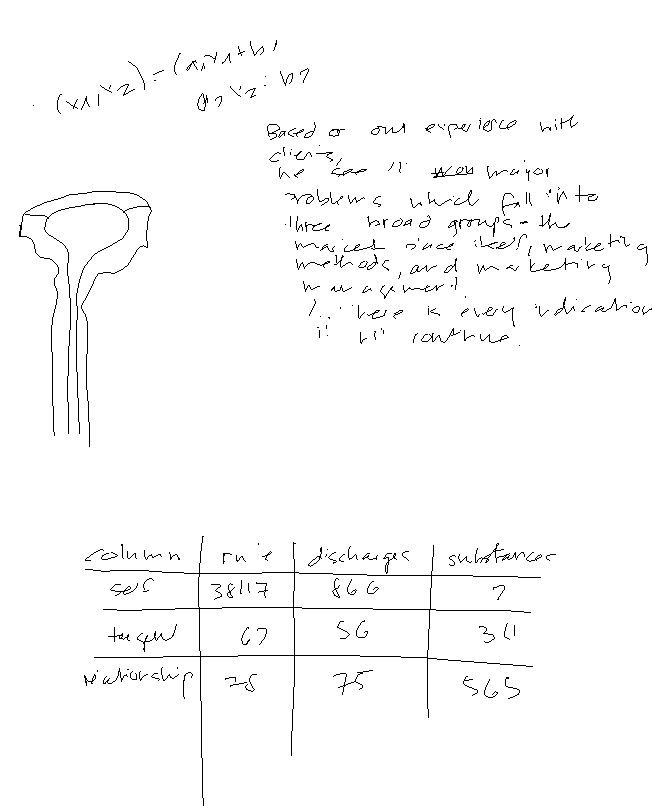 (x1,x2) = (a1x1+b1
a2x2 : b2
Based o our experience with
clients,
he see 11 major
problems which fall into
three broad groups - th
market since itself, marketing
methods, and marketing
management.
here is every indication
continue.
column rule discharges substances
self 38117 866 7
target 67 56 311
relationship 28 75 565